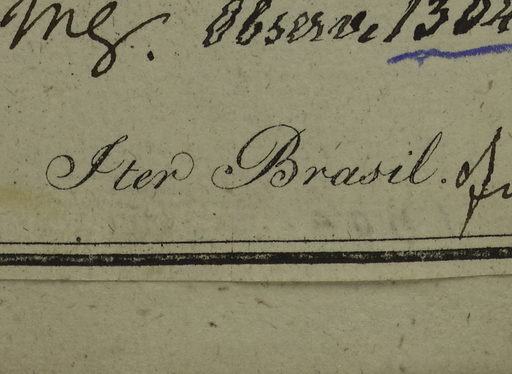 Observ. 1304
Iter Brasil.